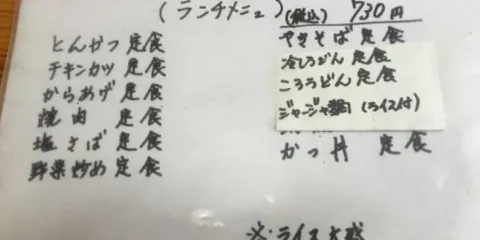 (ランチメニュ)
(税込) 730円
とんかつ定食
チキンカツ定食
からあげ定食
焼肉 定食
塩さば 定食
野菜炒め定食
やきそば定食
冷しうどん定食
ころうどん定食
ジャージャ麺 (ライス付)
かつ丼 定食
※ライス大盛